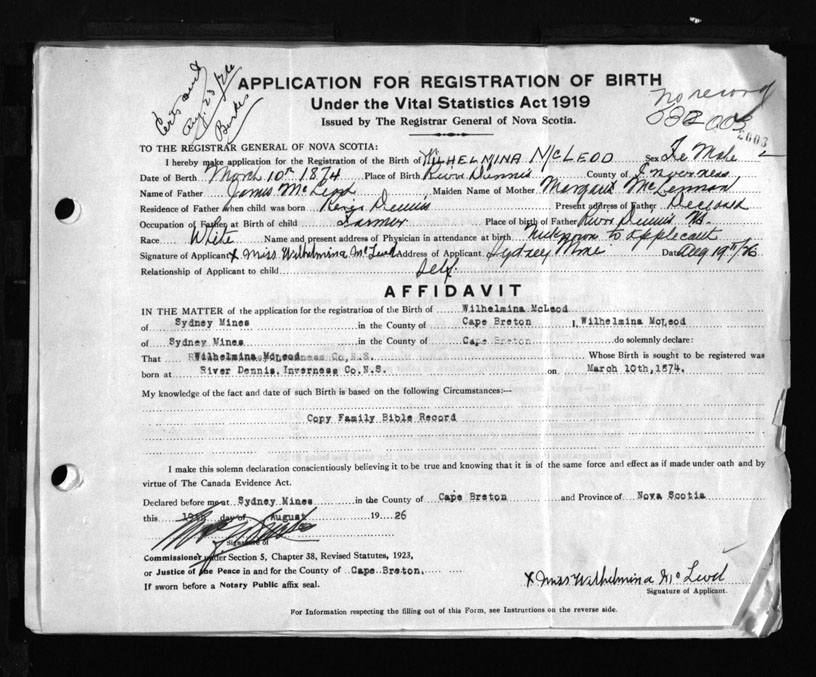 Cert and
Aug. 23/26
APPLICATION FOR REGISTRATION OF BIRTH
Under the Vital Statistics Act 1919
Issued by The Registrar General of Nova Scotia.
No record
2003
TO THE REGISTRAR GENERAL OF NOVA SCOTIA:
I hereby make application for the Registration of the Birth of WILHELMINA McLEOD Sex Fe Male
Date of Birth March 10th 1874 Place of Birth River Dennis County of Inverness
Name of Father James McLeod Maiden Name of Mother Margaret McLennan
Residence of Father when child was born River Dennis Present address of Father Deceased
Occupation of Father at Birth of child Farmer Place of birth of Father River Dennis NS.
Race White Name and present address of Physician in attendance at birth Unknown to applecant
Signature of Applicant X Miss Wilhelmina McLeod Address of Applicant Sydney Mine Date Aug 19th/26
Relationship of Applicant to child Self.
AFFIDAVIT
IN THE MATTER of the application for the registration of the Birth of Wilhelmina McLeod
of Sydney Mines in the County of Cape Breton I, Wilhelmina McLeod
of Sydney Mines in the County of Cape Breton do solemnly declare:
That Wilhelmina McLeod Whose Birth is sought to be registered was
born at River Dennis, Inverness Co.N.S. on March 10th, 1874.
My knowledge of the fact and date of such Birth is based on the following Circumstances:—
Copy Family Bible Record
I make this solemn declaration conscientiously believing it to be true and knowing that it is of the same force and effect as if made under oath and by
virtue of The Canada Evidence Act.
Declared before me at Sydney Mines in the County of Cape Breton and Province of Nova Scotia
this 19th day of August 19 26
Signature of
Commissioner under Section 5, Chapter 38, Revised Statutes, 1923,
or Justice of the Peace in and for the County of Cape Breton.
If sworn before a Notary Public affix seal.
X Miss Wilhelmina McLeod
Signature of Applicant.
For Information respecting the filling out of this Form, see Instructions on the reverse side.